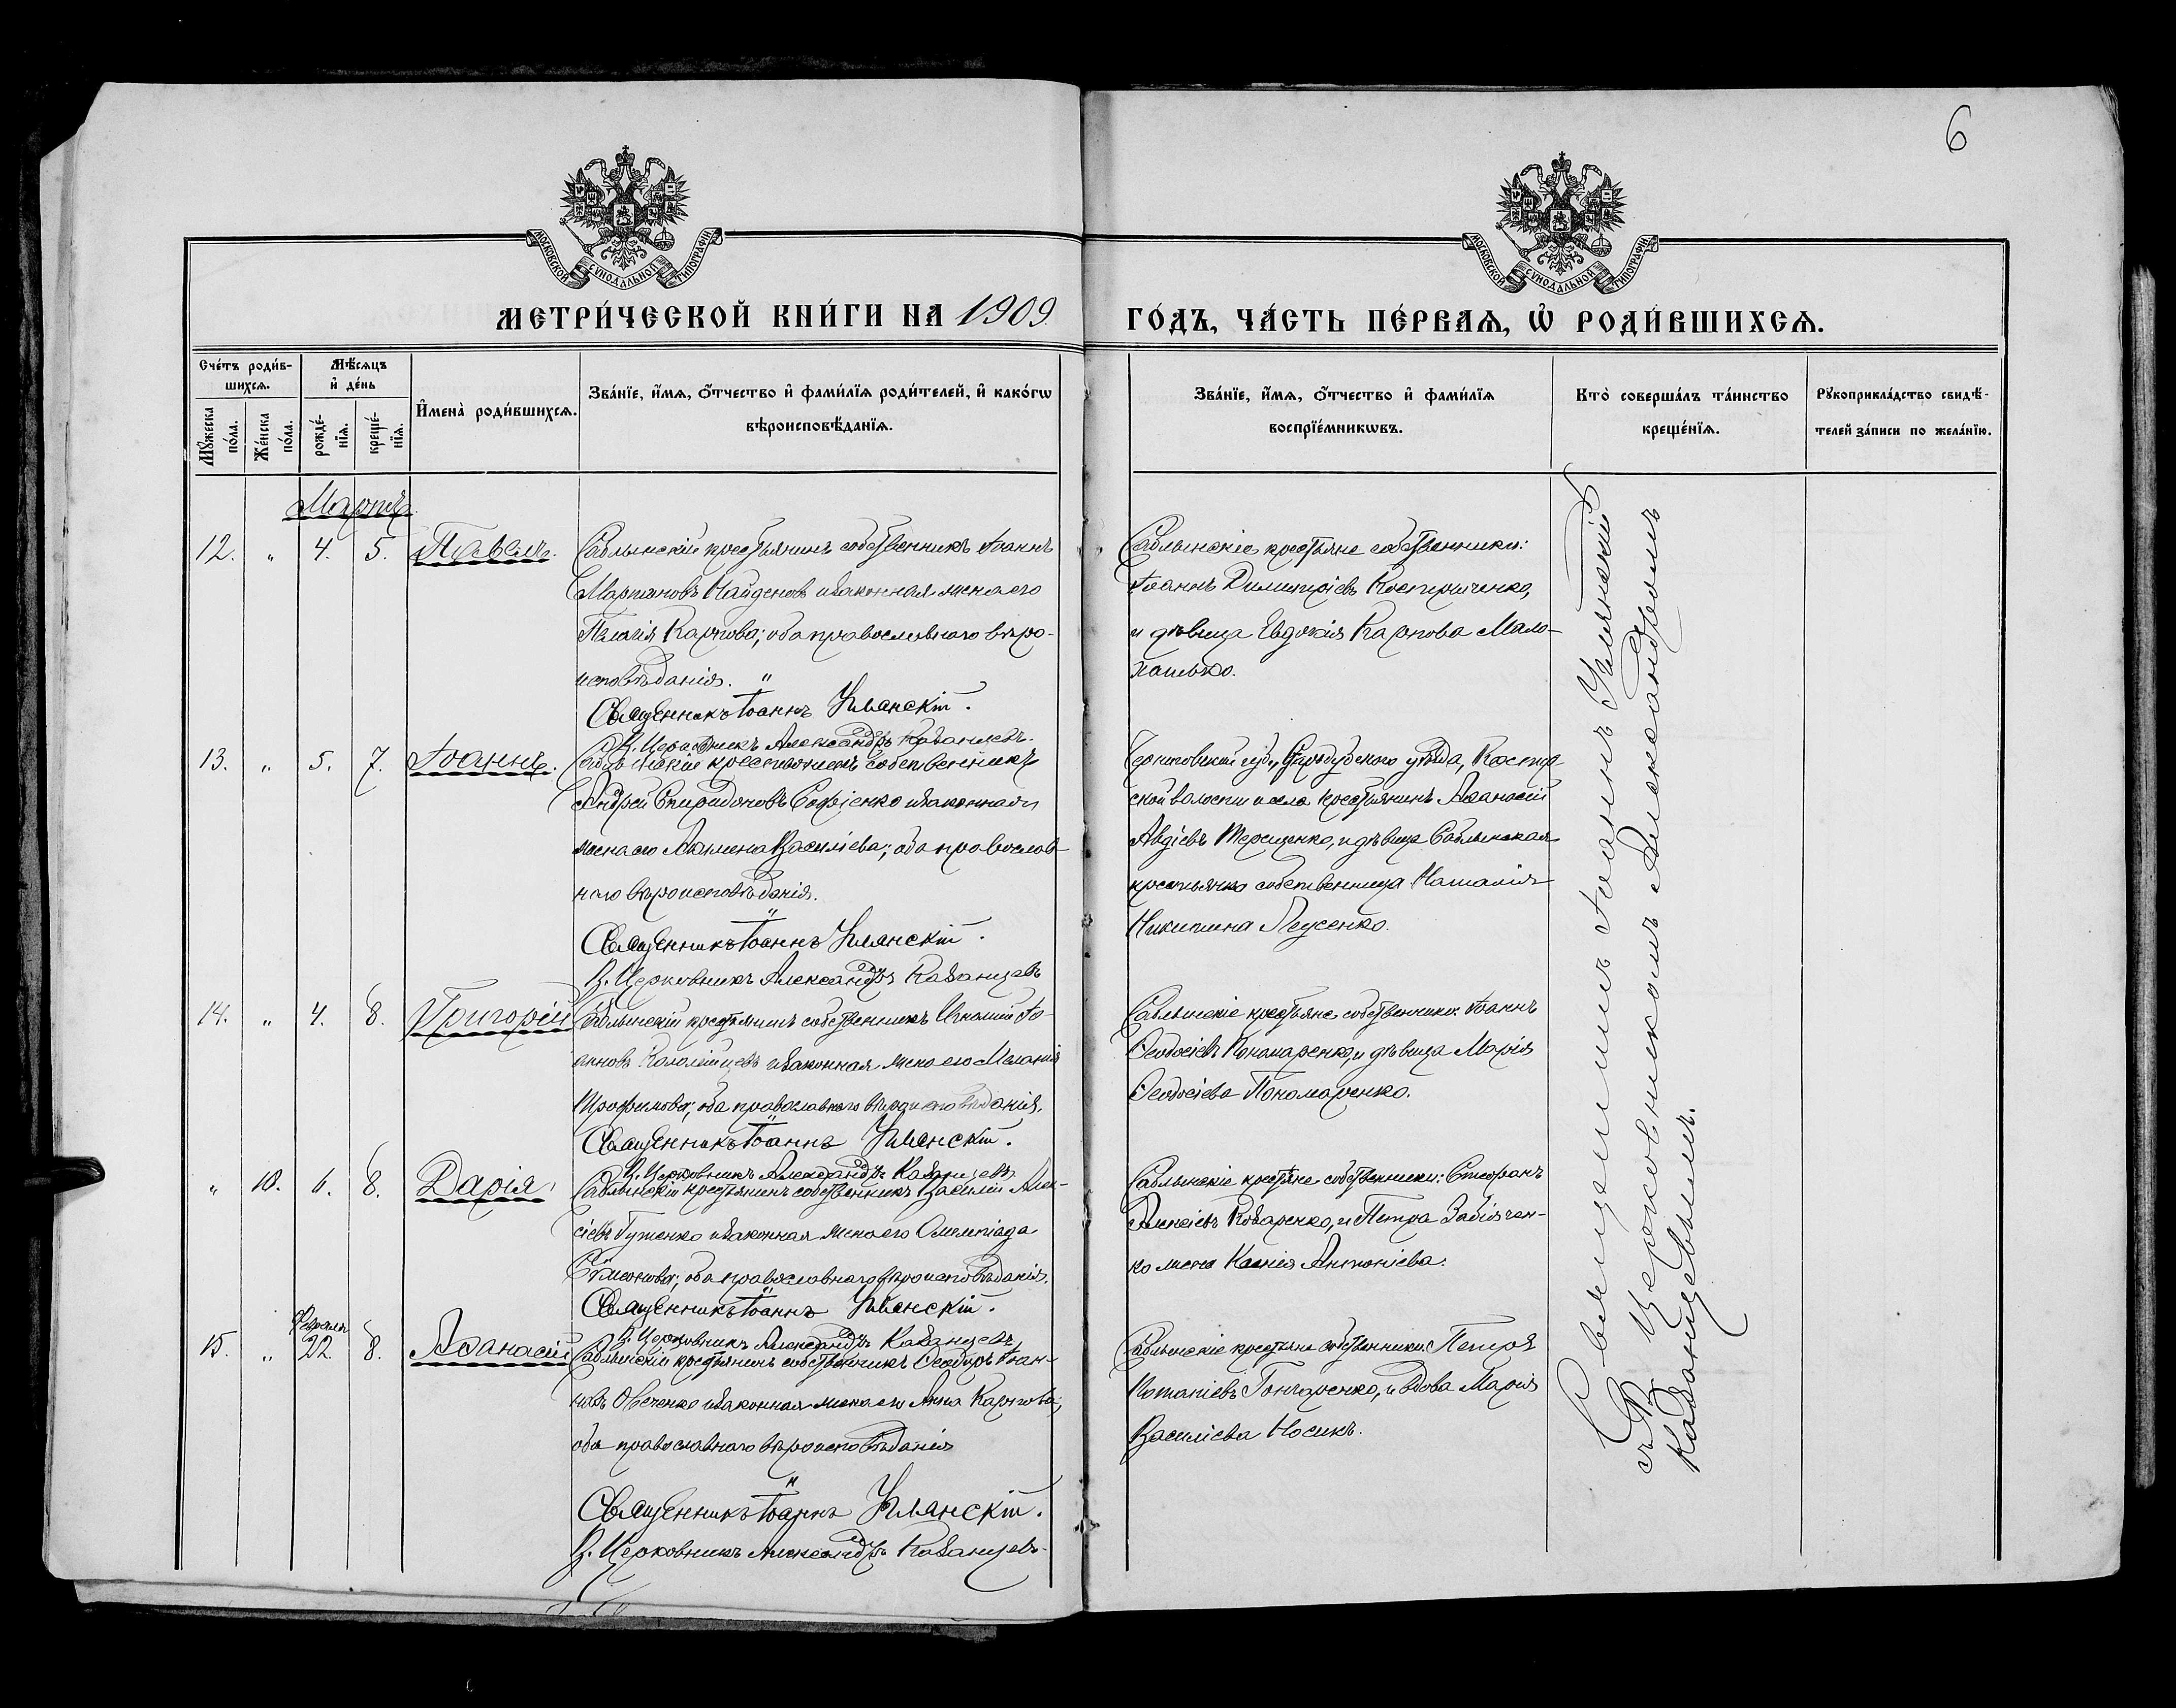 6
МОСКОВСКОЙ СѴНОДАЛЬНОЙ ТИПОГРАФІИ
МОСКОВСКОЙ СѴНОДАЛЬНОЙ ТИПОГРАФІИ
МЕТРИ́ЧЕСКОЙ КНИ́ГИ НА 1909
ГО́ДЪ, ЧА́СТЬ ПЕ́РВАѦ, Ѡ҆ РОДИ́ВШИХСѦ.
Сче́тъ роди́в-
шихсѧ.
Мꙋ́жеска по́ла.
Же́нска по́ла.
Мѣ́сѧцъ
и҆ де́нь
рожде́-нїѧ.
креще́-нїѧ.
И҆мена̀ роди́вшихсѧ.
Зва́нїе, и҆́мѧ, о҆́тчество и҆ фами́лїѧ роди́телей, и҆ како́гѡ
вѣроисповѣ́данїѧ.
Зва́нїе, и҆́мѧ, о҆́тчество и҆ фами́лїѧ
воспрїе́мникѡвъ.
Кто̀ соверша́лъ та́инство
креще́нїѧ.
Рꙋкоприкла́дство свидѣ́-
телей за́писи по жела́нїю.
Мартъ
12. " 4. 5. Павелъ.
Саблынскій крестьянинъ собственникъ Іоаннъ
Мартановъ Найденовъ и законная жена его
Пелагія Карпова; оба православнаго вѣро-
исповѣданія. "
Священникъ Іоаннъ Улянскій.
Церковникъ Александръ Казанцевъ.
Саблынскіе крестьяне собственники:
Іоаннъ Димитріевъ Костриченко,
и дѣвица Евдокія Карпова Мало-
13. " 5. 7. Іоаннъ.
крестьянинъ собственникъ
Андрей Спиридоновъ Софіенко и законная
жена его Акилина Василіева; оба православ-
наго вѣроисповѣданія.
"
Священникъ Іоаннъ Улянскій.
Церковникъ Александръ Казанцевъ
Черниговской губ., Стародубскаго уѣзда,
ской волости и села крестьянинъ Аѳанасій
Авдіевъ Терещенко, и дѣвица Саблынская
крестьянка собственница Наталія
Никитина Леусенко.
14. " 4. 8. Григорій
Саблынскій крестьянинъ собственникъ Игнатій Іо-
анновъ Коломійцевъ и законная жена его Меланія
Трофимова; оба православнаго вѣроисповѣданія.
Священникъ Іоаннъ Улянскій.
Церковникъ Александръ Казанцевъ
Саблынскіе крестьяне собственники: Іоаннъ
Ѳеодосіевъ Пономаренко, и дѣвица Марія
Ѳеодосіева Пономаренко.
" 10. 6. 8. Дарія
Саблынскій крестьянинъ собственникъ Василій Алек-
сіевъ Гутенко и законная жена его Олимпіада
Сѵмеонова; оба православнаго вѣроисповѣданія.
Священникъ Іоаннъ Улянскій.
Церковникъ Александръ Казанцевъ
Саблынскіе крестьяне собственники: Стефанъ
Алексіевъ Коваренко, и Петра Забіячен-
ко жена Ксенія Антоніева.
Февраля
15. " 22. 8. Аѳанасій
Саблынскій крестьянинъ собственникъ Ѳеодоръ Іоан-
новъ Овеченко и законная жена его Анна Карпова;
оба православнаго вѣроисповѣданія
"
Священникъ Іоаннъ Улянскій.
Церковникъ Александръ Казанцевъ.
Саблынскіе крестьяне собственники: Петръ
Потапіевъ Гончаренко, и вдова Марія
Василіева Носикъ.
Священникъ Іоаннъ Улянскій
Церковникомъ Александромъ
Казанцевымъ.